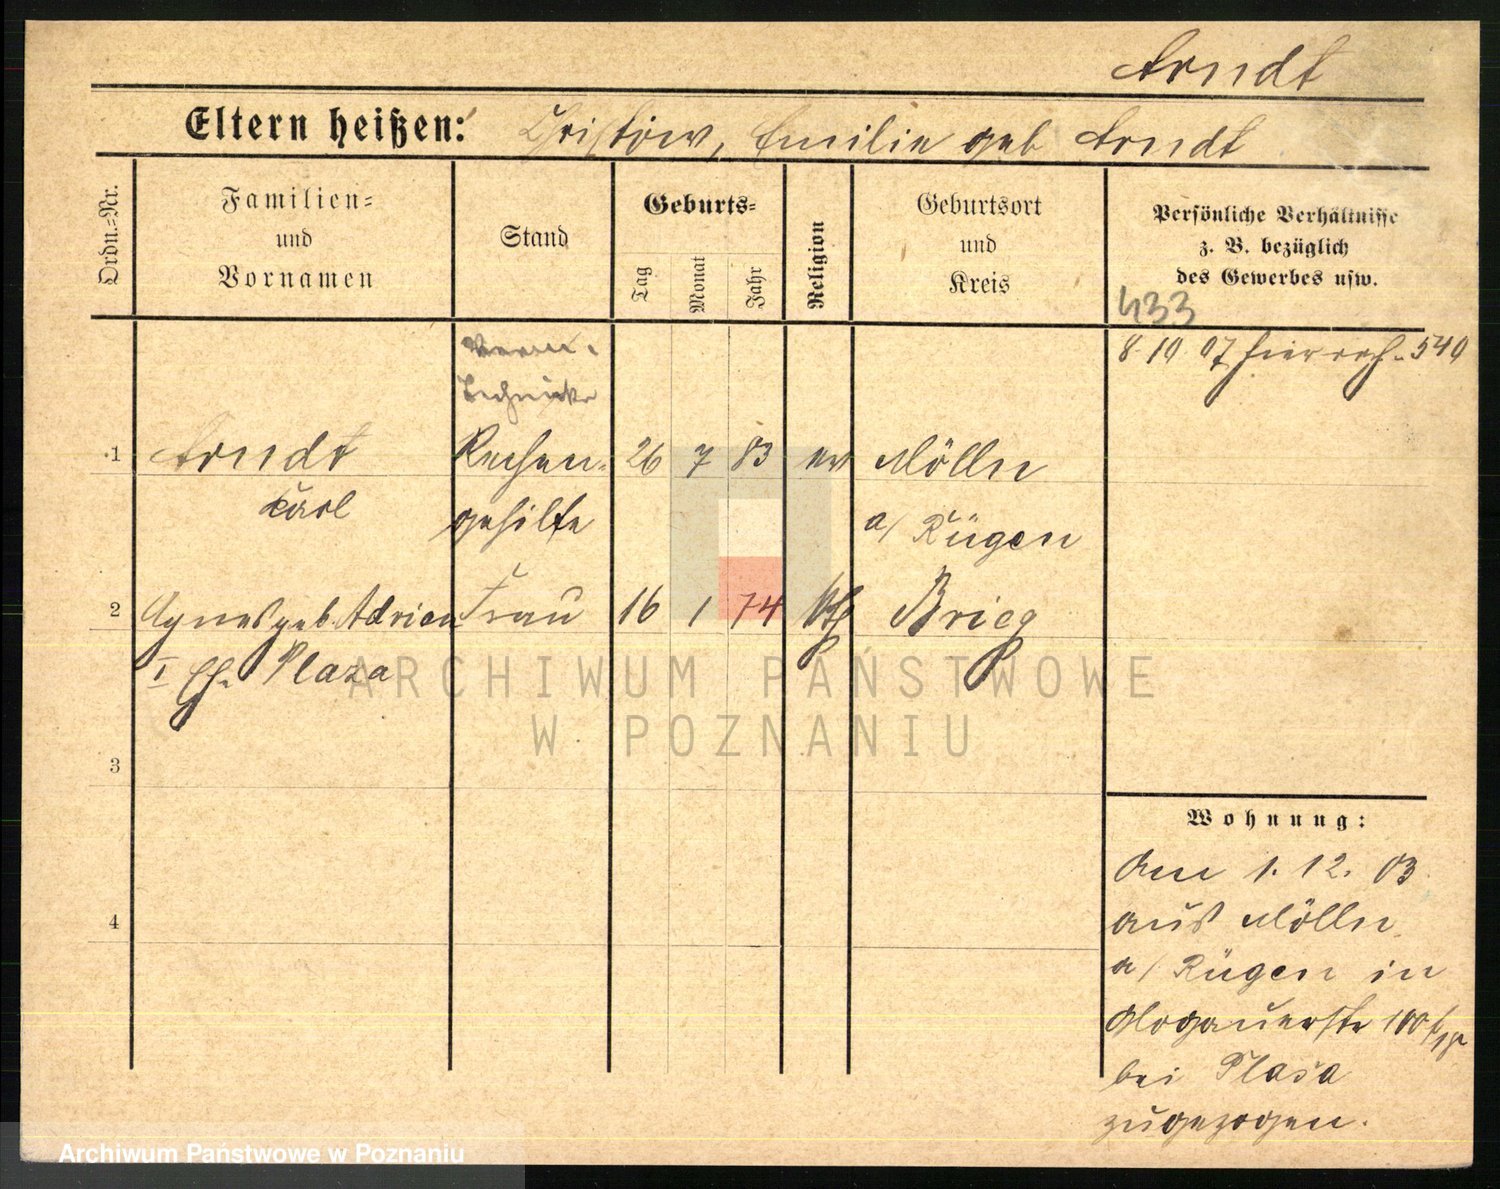 Arndt
Eltern heißen: Christow, Emilie geb Arndt
Ordn.-Nr.
Familien-
und
Vornamen
Stand
Geburts-
Tag
Monat
Jahr
Religion
Geburtsort
und
Kreis
Persönliche Verhältnisse
z. B. bezüglich
des Gewerbes usw.
433
8. 10 07 540
Techniker
1 Arndt Rechen- 26 7 83 ev Mölln
Karl gehilfe a/ Rügen
2 Agnes geb. Adrian Frau 16 1 74 kth Brieg
I Eh. Plaza
3
4
Wohnung:
Am 1. 12. 03
aus Mölln
a/ Rügen in
Glogauerstr 100
bei Plasa
zugezogen.
ARCHIWUM PAŃSTWOWE
W POZNANIU
Archiwum Państwowe w Poznaniu